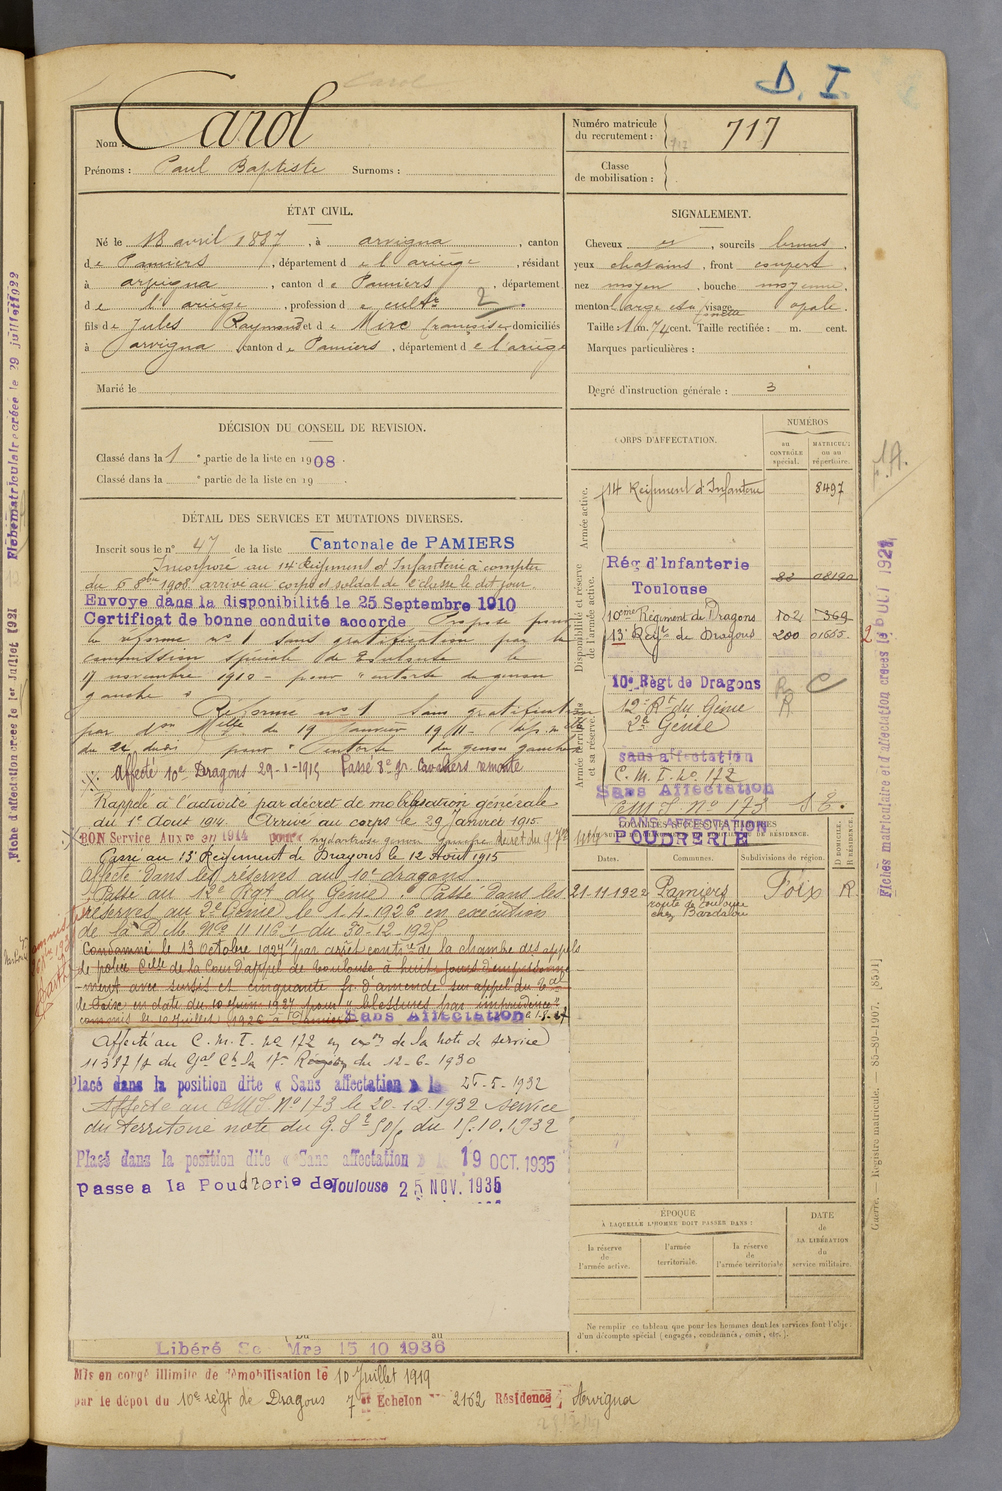 Carol
D. I.
Nom : Carol
Prénoms : Paul Baptiste Surnoms :
Numéro matricule du recrutement : 717
Classe de mobilisation :
ÉTAT CIVIL.
Né le 18 avril 1887, à arvigna, canton
de Pamiers, département de l'ariège, résidant
à arvigna, canton de Pamiers, département
de l'ariège, profession de cultr 2
fils de Jules Raymond et de Mirc françoise domiciliés
à arvigna, canton de Pamiers, département de l'ariège
Marié le
SIGNALEMENT.
Cheveux et, sourcils bruns,
yeux chatains, front couvert,
nez moyen, bouche moyenne,
menton large visage ovale.
Taille : 1 m. 74 cent. Taille rectifiée : m. cent.
Marques particulières :
Degré d'instruction générale : 3
DÉCISION DU CONSEIL DE REVISION.
Classé dans la 1 e partie de la liste en 1908.
Classé dans la e partie de la liste en 19 .
DÉTAIL DES SERVICES ET MUTATIONS DIVERSES.
Inscrit sous le n° 47 de la liste Cantonale de PAMIERS
Incorporé au 14e Régiment d'Infanterie à compter
du 6 8bre 1908 arrivé au corps et soldat de 2e classe le dit jour
Envoye dans la disponibilité le 25 Septembre 1910
Certificat de bonne conduite accorde Proposé pour
la réforme n° 1 sans gratification par la
commission spéciale de Toulouse le
17 novembre 1910 - pour "entorse du genou
gauche"
Réformé n° 1 sans gratification
par don Mlle du 19 Janvier 1911
du 22 dudit pour "Entorse du genou gauche
Affecté 10e Dragons 29-1-1915 Passé 8e gr. Cavaliers remonte
Rappelé à l'activité par décret de mobilisation générale
du 1er Aout 1914. Arrivé au corps le 29 Janvier 1915.
BON Service Auxre en 1914 pour hydarthrose genou gauche décret du 9 7bre 1914
Passé au 13e Régiment de Dragons le 12 Août 1915
affecté dans les réserves au 10e dragons.
Passé au 12e Rgt du Génie. Passé dans les
réserves au 2e Génie le 1-4-1926 en exécution
de la D.M. N° 11116 du 30-12-1925
Condamné le 13 Octobre 1927 par arrêt contre de la chambre des appels
de police Clle de la Cour d'appel de Toulouse à huit jours d'emprisonne-
-ment avec sursis et cinquante fr d'amende sur appel du Tal
de Foix en date du 10 Juin 1927 pour "blessures par imprudence"
commis le 10 juillet 1926 à Pamiers Sans Affectation
Affecté au C.M.I. no 172 en exon de la note de service
11387 / du Gal Ct la 17e Région du 12-6-1930
Placé dans la position dite « Sans affectation » le 25-5-1932
Affecté au CMI N° 173 le 20-12-1932 service
du territoire note du G. du 15.10.1932
Placé dans la position dite « Sans affectation » le 19 OCT. 1935
Passe a la Poudrerie de Toulouse 25 NOV. 1935
Du au
Libéré Mre 15 10 1936
CORPS D'AFFECTATION.
NUMÉROS
au CONTRÔLE spécial.
MATRICULE ou au répertoire.
Armée active.
14 Régiment d'Infanterie 8497
Disponibilité et réserve de l'armée active.
Rég d'Infanterie
Toulouse 82 08190
10ème Régiment de Dragons 102 5369
13e Régt de Dragons 200 01655
10e Règt de Dragons R C
Armée territoriale et sa réserve.
12e Rt du Génie R
2e Génie
sans affectation
C.M.I. no 172
Sans Affectation
CMI N° 173 S E.
SANS AFFECTATION
POUDRERIE
LOCALITÉS SUCCESSIVES HABITÉES
Dates.
Communes.
Subdivisions de région.
D DOMICILE. R RÉSIDENCE.
21-11-1922 Pamiers Foix R.
route de Toulouse
chez Bardalou
ÉPOQUE
À LAQUELLE L'HOMME DOIT PASSER DANS :
la réserve de l'armée active.
l'armée territoriale.
la réserve de l'armée territoriale
DATE de LA LIBÉRATION du service militaire.
Ne remplir ce tableau que pour les hommes dont les services font l'objet
d'un décompte spécial (engagés, condamnés, omis, etc.).
Mis en congé illimité de démobilisation le 10 Juillet 1919
par le dépôt du 10e régt de Dragons 7e Echelon n° 2162 Résidence : Arvigna
Guerre. — Registre matricule. — 85-89-1907. [8501]
Fiches matriculaire et d'affectation créées le AOUT 1921
Fiche matriculaire créée le 29 juillet 1922
Fiche d'affectation créée le 1er Juillet 1921